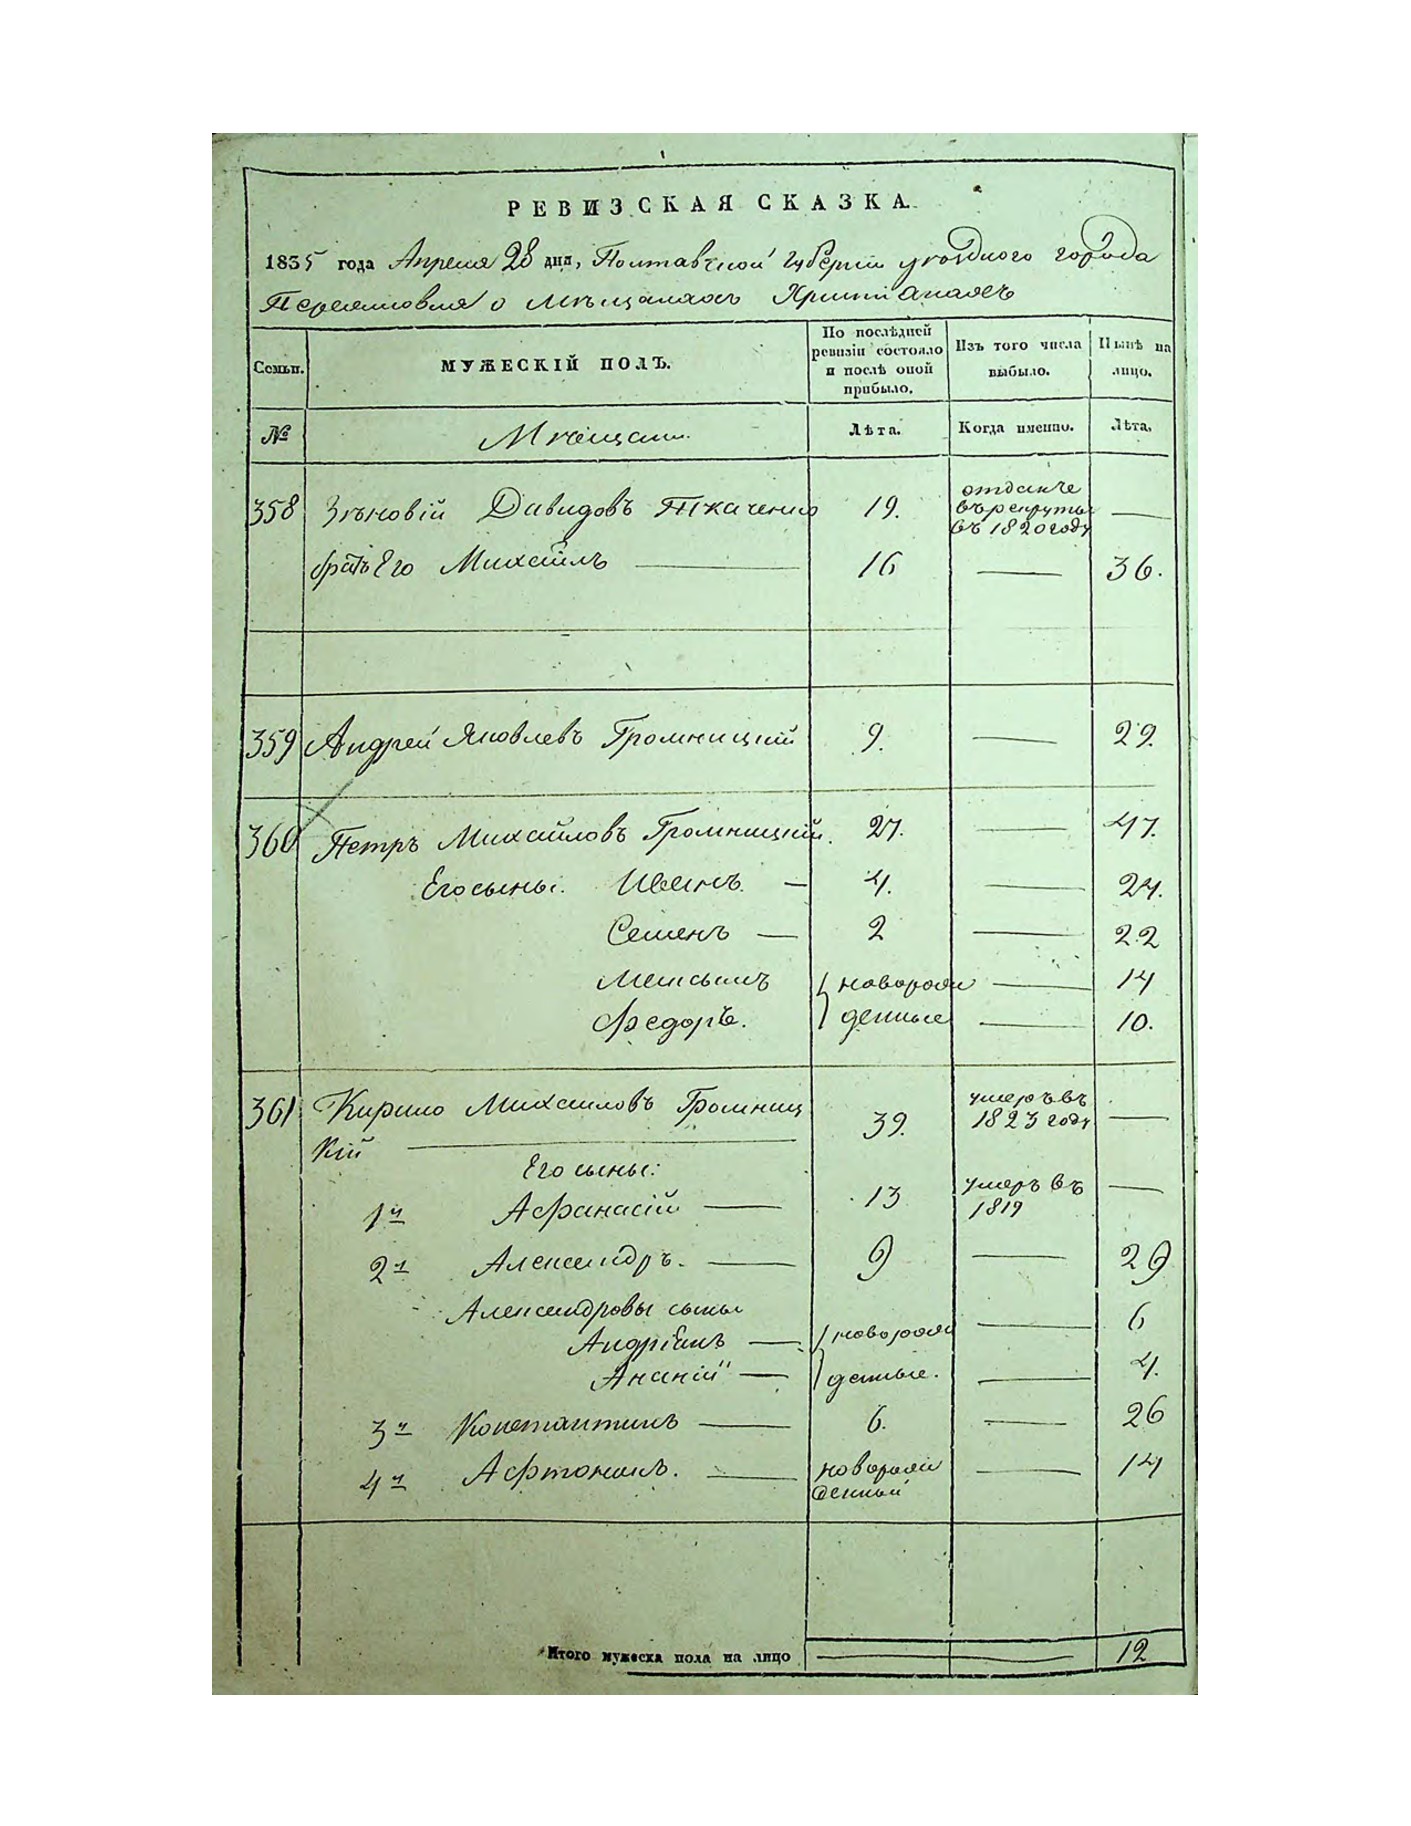 РЕВИЗСКАЯ СКАЗКА.
1835 года Апреля 28 дня, Полтавской Губерніи уѣзднаго города
Переяслова о мѣщанахъ Христіанахъ
Семьи.
МУЖЕСКІЙ ПОЛЪ.
По послѣдней ревизіи состояло и послѣ оной прибыло.
Изъ того числа выбыло.
Нынѣ на лицо.
№
Мѣщани.
Лѣта.
Когда именно.
Лѣта.
358 Зѣновій Давидовъ Ткаченко 19. отданъ
въ рекруты
въ 1820 году —
братъ Его Михайлъ — 16 — 36.
359 Андрей Яковлевъ Громницкій 9. — 29.
360 Петръ Михайловъ Громницкій. 27. — 47.
Его сыны: Иванъ — 4. — 24.
Семенъ — 2 — 22
Максымъ } новорож — 14
Федоръ. } денные — 10.
361 Кирило Михаиловъ Громниц 39. умеръ въ
1823 году —
кій —
Его сыны:
1й Афанасій — 13 умеръ въ
1819 —
2й Александръ. — 9 — 29
Александровы сыны
Андріянъ — } новорож — 6
Ананій — } денные. — 4.
3й Константинъ — 6. — 26
4й Афтономъ. — новорож
денный — 14
Итого мужеска пола на лицо — 12